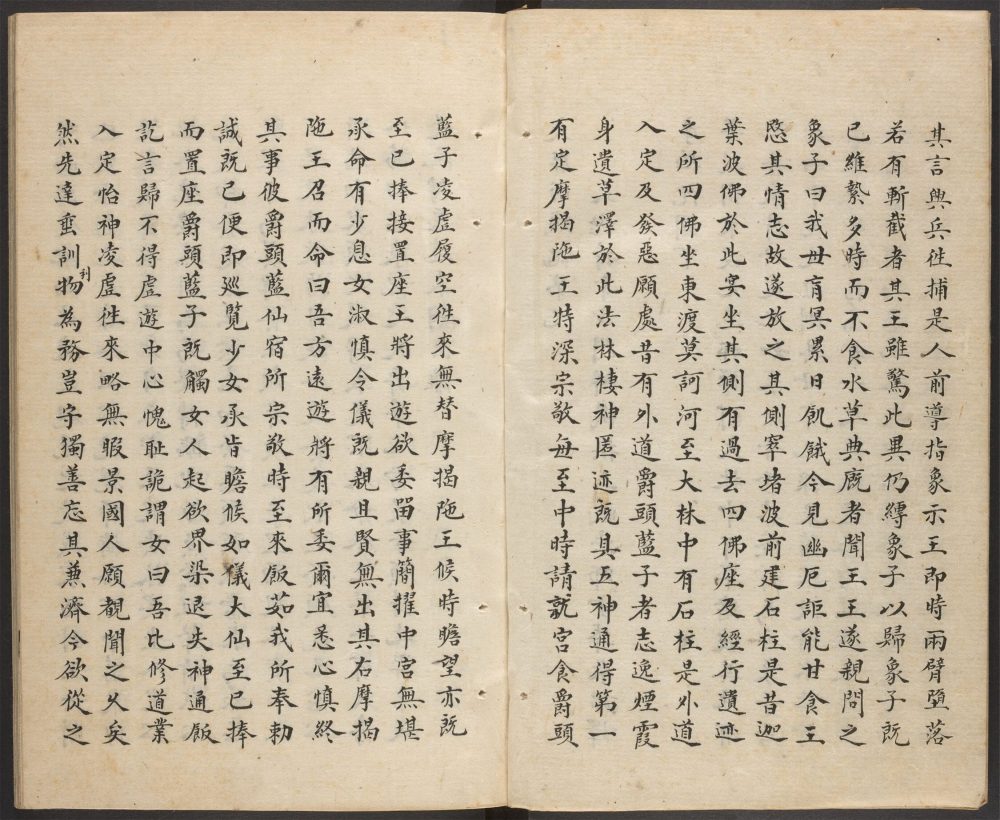 其言與兵徃捕是人前導指象示王即時兩臂墮落
若有斬截者其王雖驚此異仍縛象子以歸象子既
已維縶多時而不食水草典廐者聞王王遂親問之
象子曰我母肓冥累日飢餓今見幽厄詎能甘食王
愍其情志故遂放之其側窣堵波前建石柱是昔迦
葉波佛於此宴坐其側有過去四佛座及經行遺迹
之所四佛坐東渡莫訶河至大林中有石柱是外道
入定及發惡願處昔有外道爵頭藍子者志逸煙霞
身遺草澤於此法林棲神匿迹既具五神通得第一
有定摩揭陁王特深宗敬每至中時請就宮食爵頭
藍子凌虛履空徃來無替摩揭陁王候時瞻望亦既
至已捧接置座王將出遊欲委留事簡擢中宮無堪
承命有少息女淑慎令儀既親且賢無出其右摩揭
陁王召而命曰吾方遠遊將有所委爾宜悉心慎終
其事彼爵頭藍仙宿所宗敬時至來飯如我所奉勅
誠既已便即巡覽少女承旨瞻候如儀大仙至已捧
而置座爵頭藍子既觸女人起欲界染退失神通飯
訖言歸不得虛遊中心愧耻詭謂女曰吾比修道業
入定怡神凌虛徃來略無暇景國人願覩聞之久矣
然先達垂訓利物為務豈守獨善忘其兼濟今欲從之